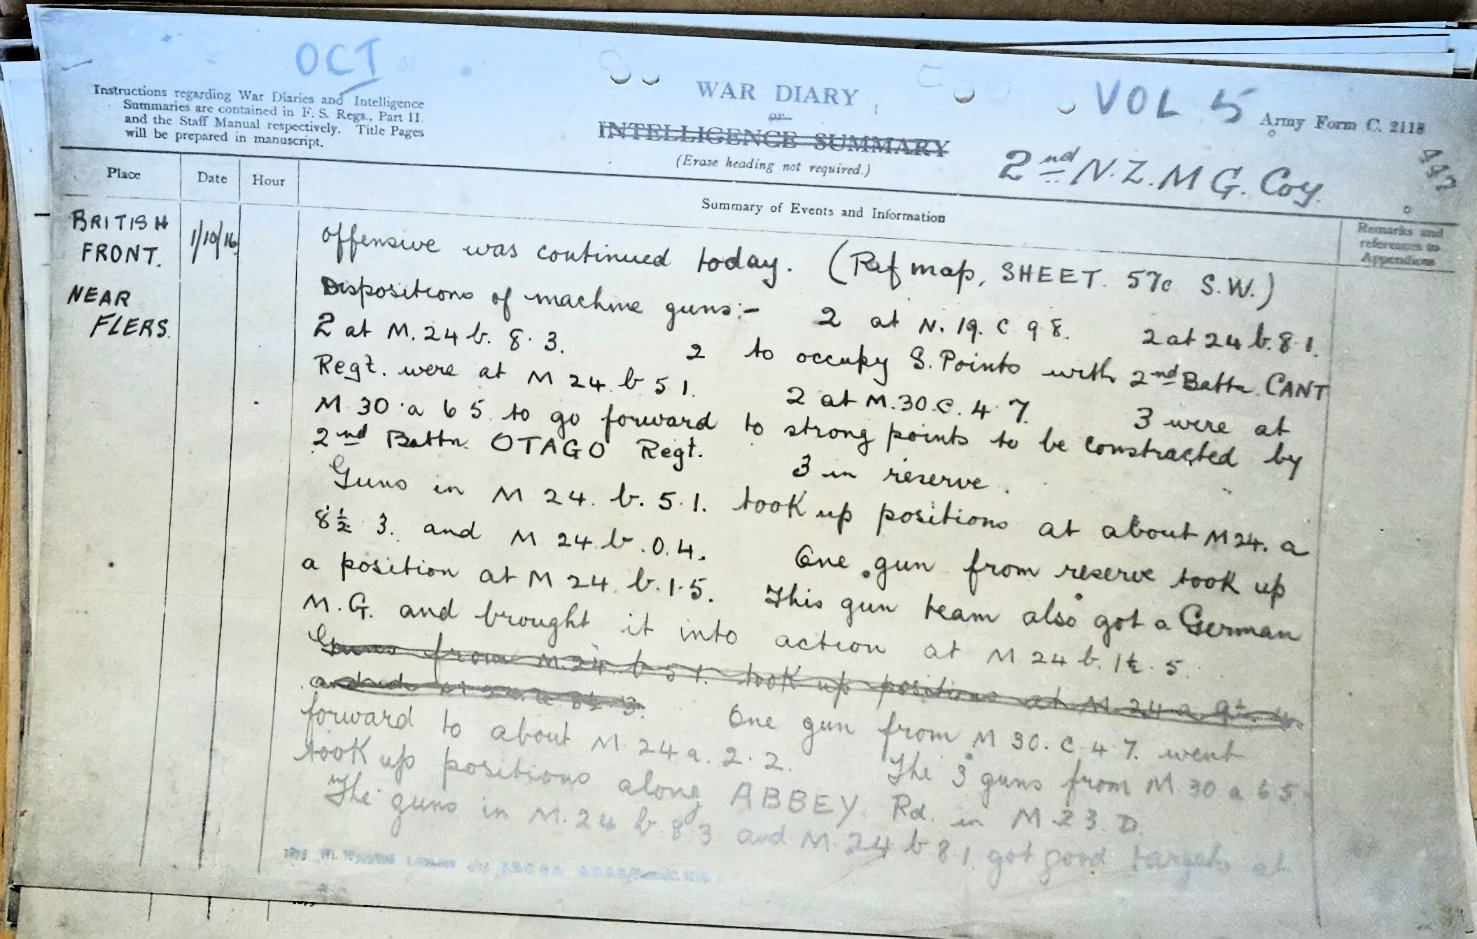 OCT
Instructions regarding War Diaries and Intelligence
Summaries are contained in F. S. Regs., Part II.
and the Staff Manual respectively. Title Pages
will be prepared in manuscript.
WAR DIARY
or
INTELLIGENCE SUMMARY
(Erase heading not required.)
VOL 5
Army Form C. 2118
2nd N.Z. M G. Coy.
Place Date Hour
Summary of Events and Information
Remarks and
references to
Appendices
BRITISH
FRONT.
NEAR
FLERS.
1/10/16
offensive was continued today. (Ref map, SHEET. 57c S.W.)
Dispositions of machine guns:- 2 at N. 19. C 9 8. 2 at 24 b. 8.1.
2 at M. 24 b. 8. 3. 2 to occupy S. Points with 2nd Battn. CANT
Regt. were at M 24 b 5 1. 2 at M. 30. C. 4 7. 3 were at
M. 30 a 6 5. to go forward to strong points to be constructed by
2nd Battn OTAGO Regt. 3 in reserve.
Guns in M 24. b. 5.1. took up positions at about M24. a
8½ 3. and M 24. b. 0.4. One gun from reserve took up
a position at M 24. b. 1.5. This gun team also got a German
M.G. and brought it into action at M 24 b. 1½. 5.
Guns from M. 24. b 5 1. took up positions at M. 24 a 9½
One gun from M 30. C. 4 7. went
forward to about M 24 a. 2. 2. The 3 guns from M. 30 a 6 5.
took up positions along ABBEY Rd. in M 23. D.
The guns in M. 24 b. 8 3 and M. 24 b 8 1 got good targets at